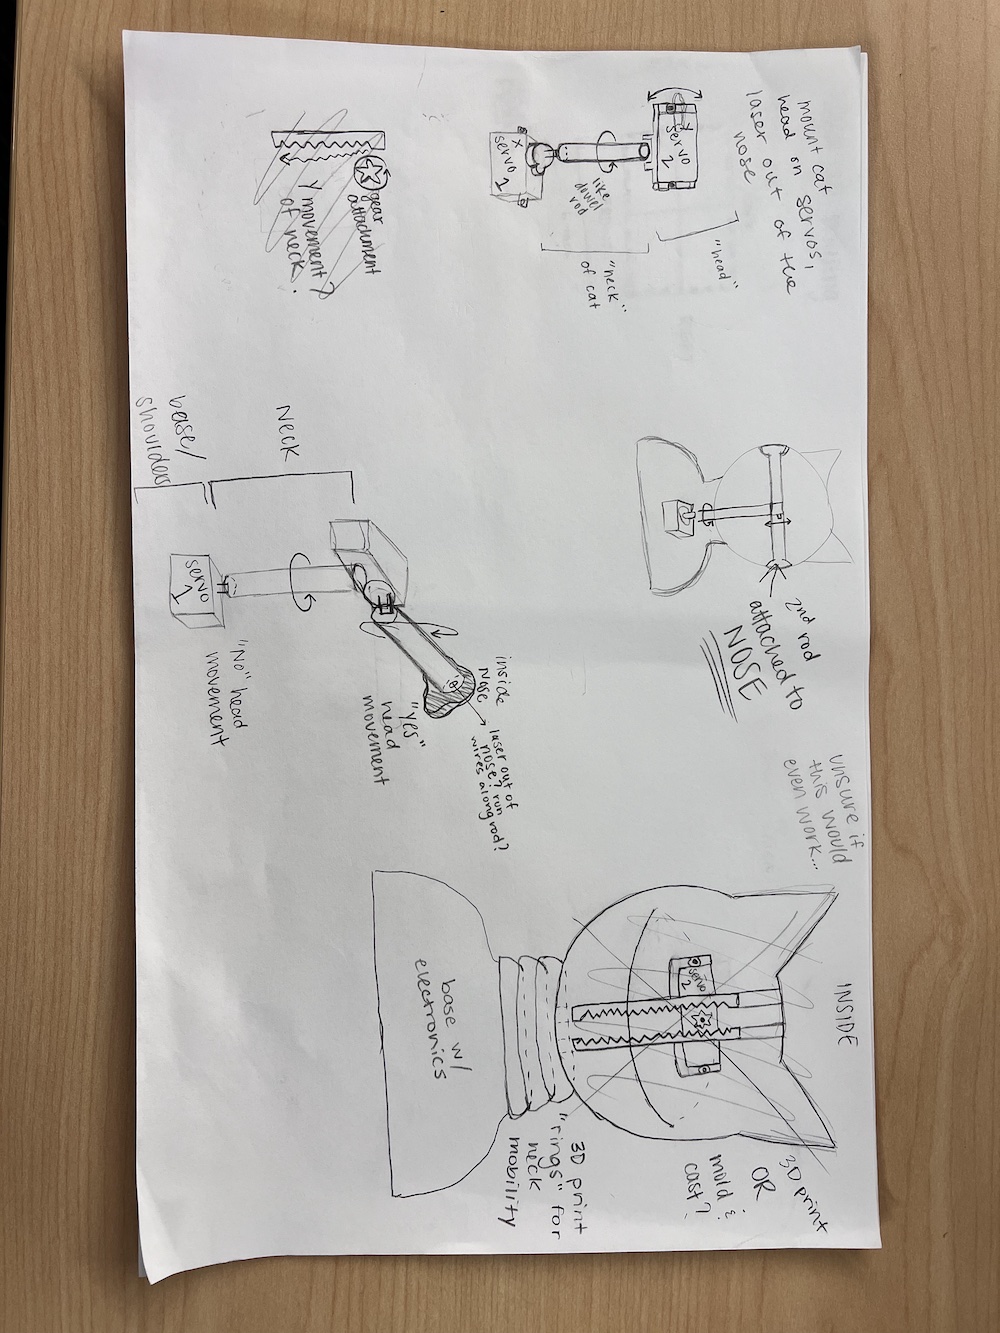 mount cat
head on servos,
laser out of the
nose
X
servo
1
Y
servo
2
like
dowel
rod
"neck"
of cat
"head"
gear
attachment
Y movement?
of neck!
2nd rod
attached to
NOSE
base/
shoulders
Neck
servo
1
"No" head
movement
"yes"
head
movement
inside
nose
laser out of
nose? run
wires along rod?
unsure if
this would
even work...
INSIDE
servo
2
3D print
OR
mold &
cast?
3D print
"rings" for
neck
mobility
base w/
electronics